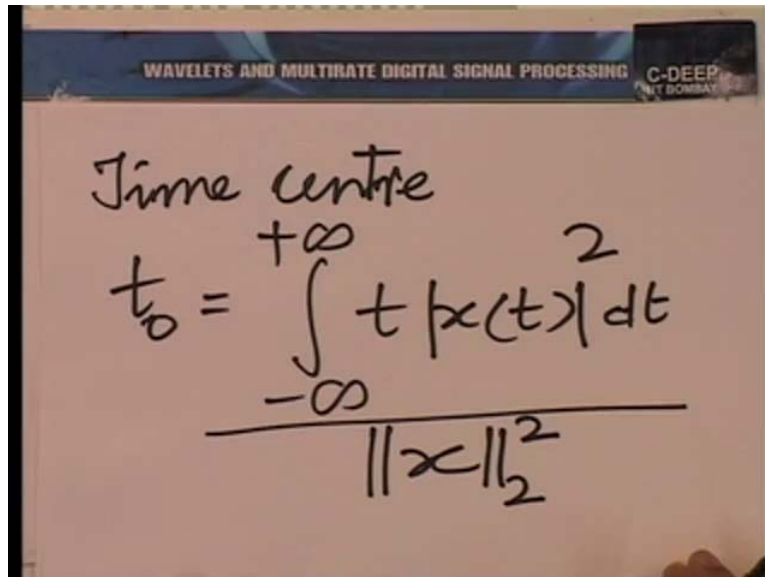 WAVELETS AND MULTIRATE DIGITAL SIGNAL PROCESSING
C-DEEP
IIT BOMBAY
Time centre
+∞
t₀ = ∫ t |x(t)|² dt
-∞
||x||₂²